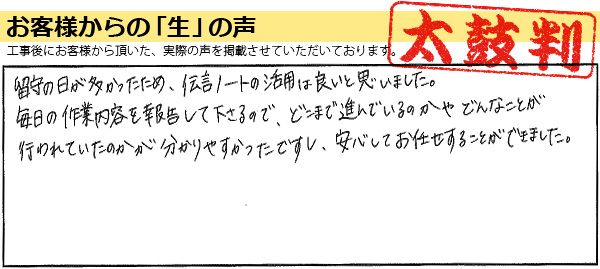 お客様からの「生」の声
太鼓判
工事後にお客様から頂いた、実際の声を掲載させていただいております。
留守の日が多かったため、伝言ノートの活用は良いと思いました。
毎日の作業内容を報告して下さるので、どこまで進んでいるのかや どんなことが
行われていたのかが 分かりやすかったですし、安心してお任せすることができました。